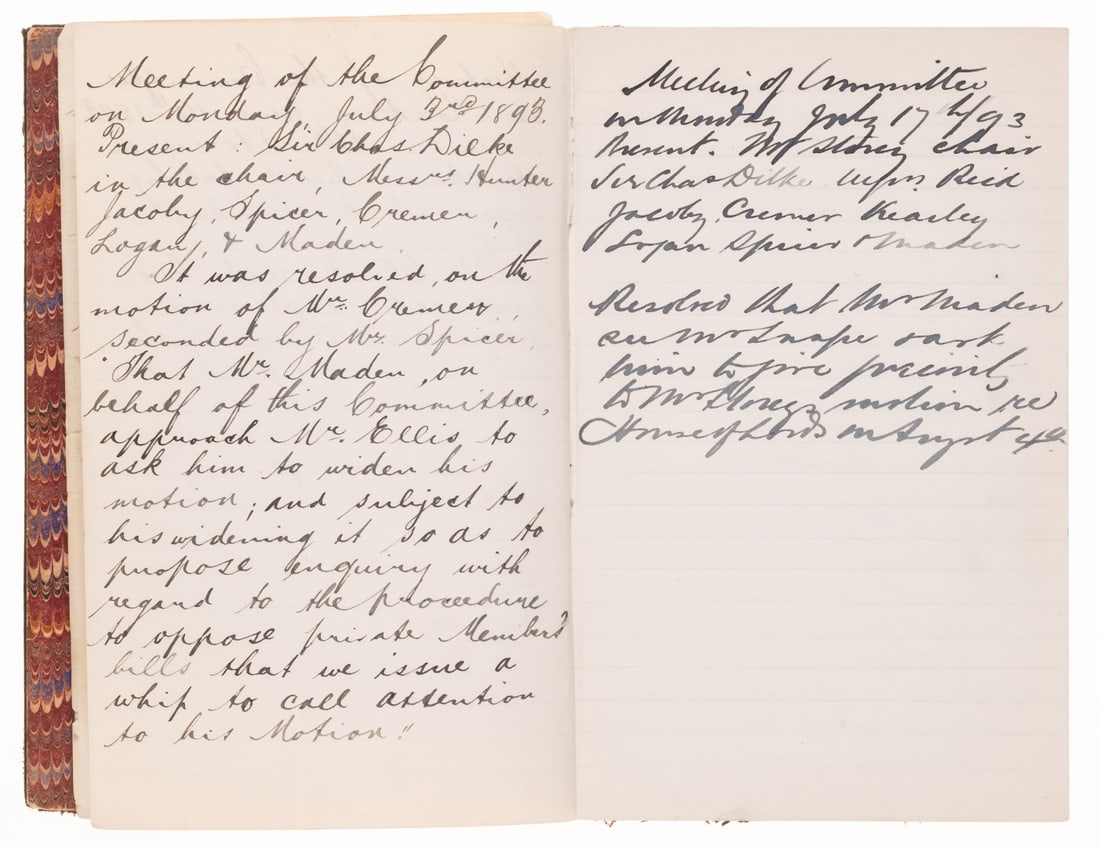 Meeting of the Committee
on Monday July 3rd 1893.
Present: Sir Chas Dilke
in the chair, Messrs. Hunter
Jacoby, Spicer, Cremer,
Logan, & Maden.
It was resolved, on the
motion of Mr. Cremer,
seconded by Mr. Spicer,
"That Mr. Maden, on
behalf of this Committee,
approach Mr. Ellis to
ask him to widen his
motion; and subject to
his widening it so as to
propose enquiry with
regard to the proceedure
to oppose private Members'
bills that we issue a
whip to call attention
to his Motion."
Meeting of Committee
on Monday July 17th/93
Present. Mr Storey chair
Sir Chas Dilke Messrs. Reid
Jacoby Cremer Kearley
Logan Spicer & Maden
Resolved that Mr Maden
see Mr Snape & ask
him to give
to Mr Storeys motion re
House of Lords on August 4th